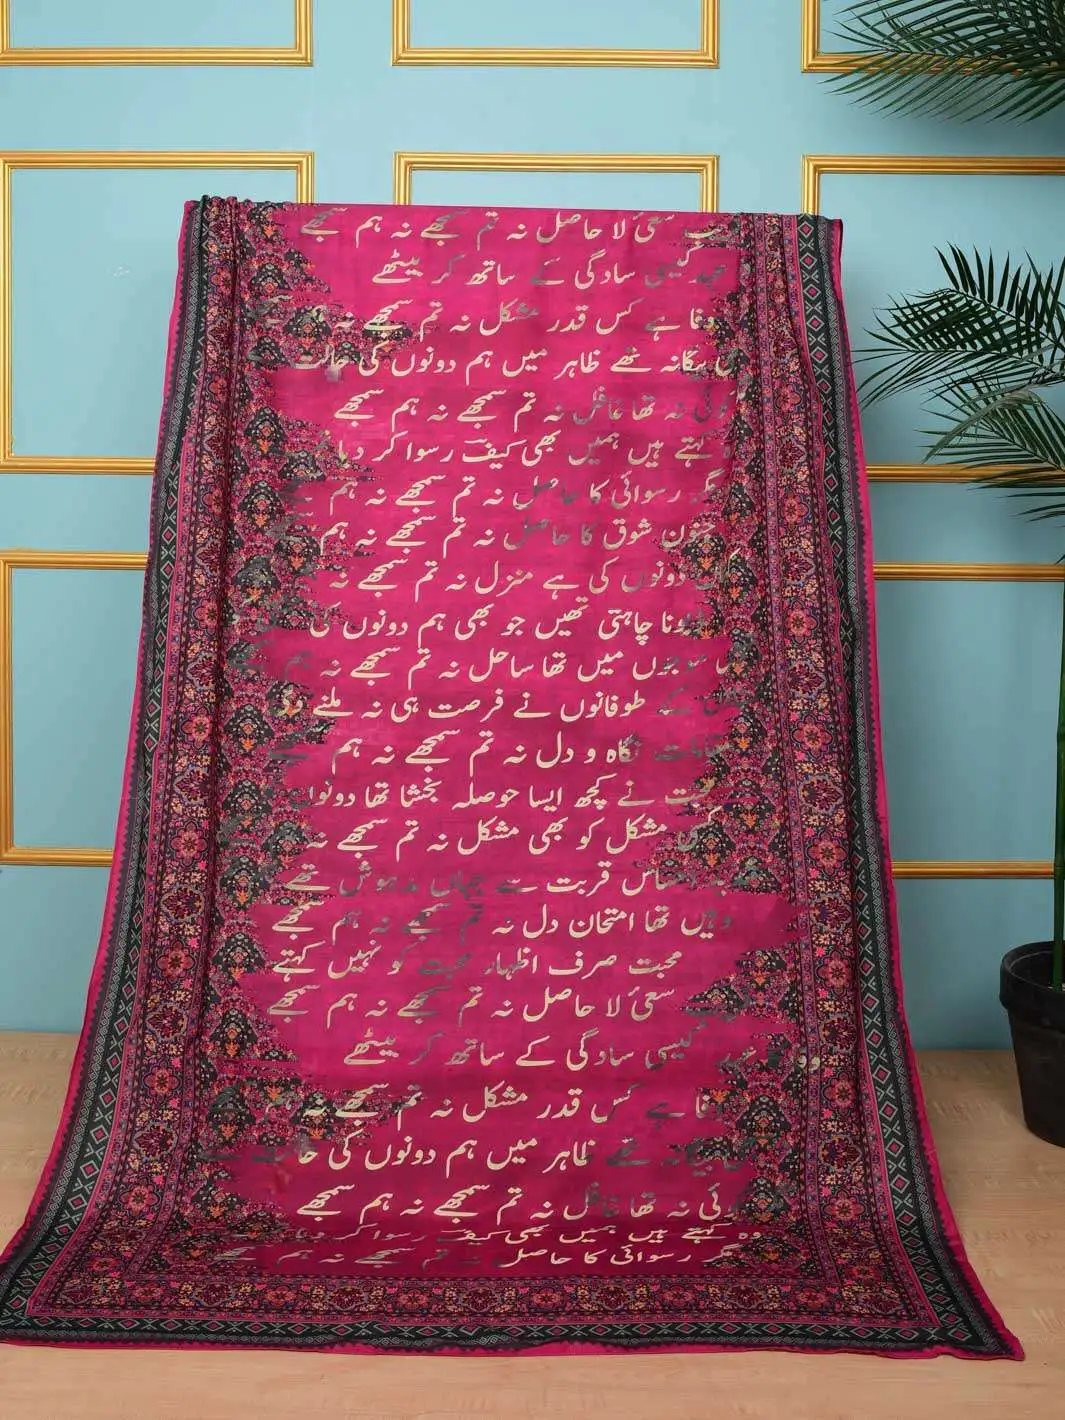 سعیٔ لا حاصل نہ تم سمجھے نہ ہم سمجھے
کیسی سادگی کے ساتھ کر بیٹھے
وفا ہے کس قدر مشکل نہ تم سمجھے نہ ہم سمجھے
بیگانہ تھے ظاہر میں ہم دونوں کی حالت
کوئی نہ تھا غافل نہ تم سمجھے نہ ہم سمجھے
کہتے ہیں ہمیں بھی کیفؔ رسوا کر دیا
مگر رسوائی کا حاصل نہ تم سمجھے نہ ہم
جنون شوق کا حاصل نہ تم سمجھے نہ ہم
دونوں کی ہے منزل نہ تم سمجھے نہ
ہونا چاہتی تھیں جو بھی ہم دونوں کی
موجوں میں تھا ساحل نہ تم سمجھے نہ ہم
کے طوفانوں نے فرصت ہی نہ ملنے دی
مقامات نگاہ و دل نہ تم سمجھے نہ ہم سمجھے
محبت نے کچھ ایسا حوصلہ بخشا تھا دونوں
کسی مشکل کو بھی مشکل نہ تم سمجھے نہ
احساس قربت سے جہاں مدہوش تھے
وہیں تھا امتحان دل نہ تم سمجھے نہ ہم سمجھے
محبت صرف اظہار محبت کو نہیں کہتے
سعیٔ لا حاصل نہ تم سمجھے نہ ہم سمجھے
کیسی سادگی کے ساتھ کر بیٹھے
وفا ہے کس قدر مشکل نہ تم سمجھے نہ ہم
بیگانہ تھے ظاہر میں ہم دونوں کی حالت
کوئی نہ تھا غافل نہ تم سمجھے نہ ہم سمجھے
وہ کہتے ہیں ہمیں بھی کیفؔ رسوا کر دیا
مگر رسوائی کا حاصل نہ تم سمجھے نہ ہم سمجھے